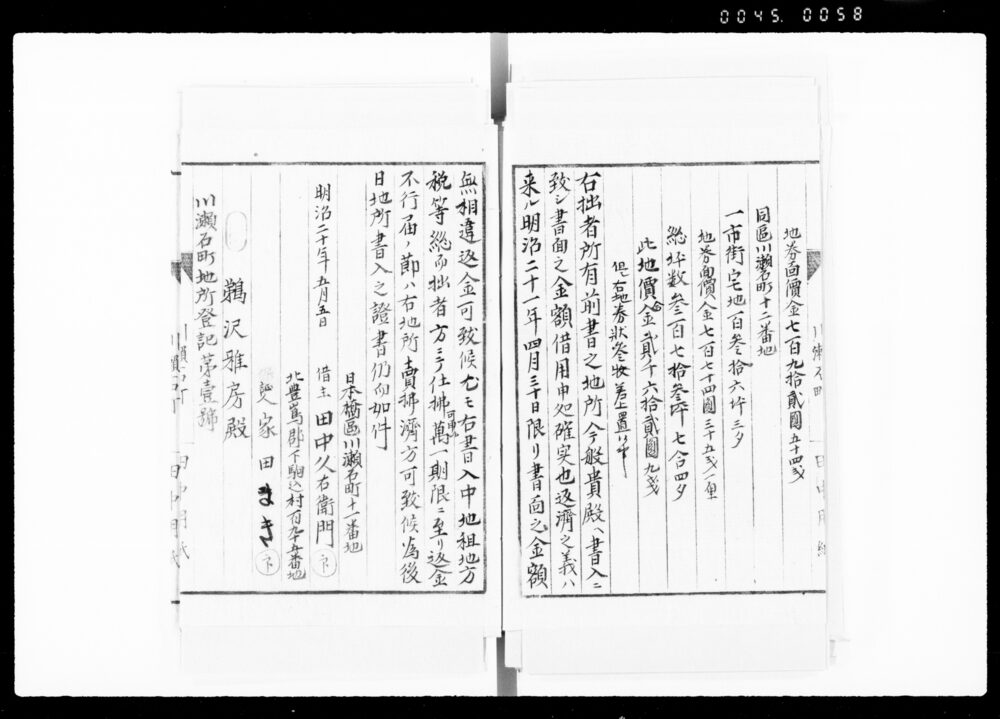 0045. 0058
地券面價金七百九拾貳圓五十四戔
同區川瀬石町十二番地
一市街宅地百叄拾六坪三夕
地券面價金七百七十四圓三十五戔厘
総坪数叄百七拾叄坪七合四夕
此地價金貳千六拾貳圓九戔
但シ右地券状叄枚差上置候
右拙者所有前書之地所今般貴殿ヘ書入ニ
致シ書面之金額借用申処確実也返濟之義ハ
来ル明治二十一年四月三十日限リ書面之金額
無相違返金可致候尤モ右書入中地租地方
税等総而拙者方ニ而仕拂可申萬一期限ニ至リ返金
不行届ノ節ハ右地所賣拂濟方可致候為後
日地所書入之證書仍而如件
明治二十年五月五日
日本橋區川瀬石町十一番地
借主 田中久右衛門
北豊嶌郡下駒込村百九十五番地
家田まき
鵜沢雅房殿
川瀬石町地所登記第壹號